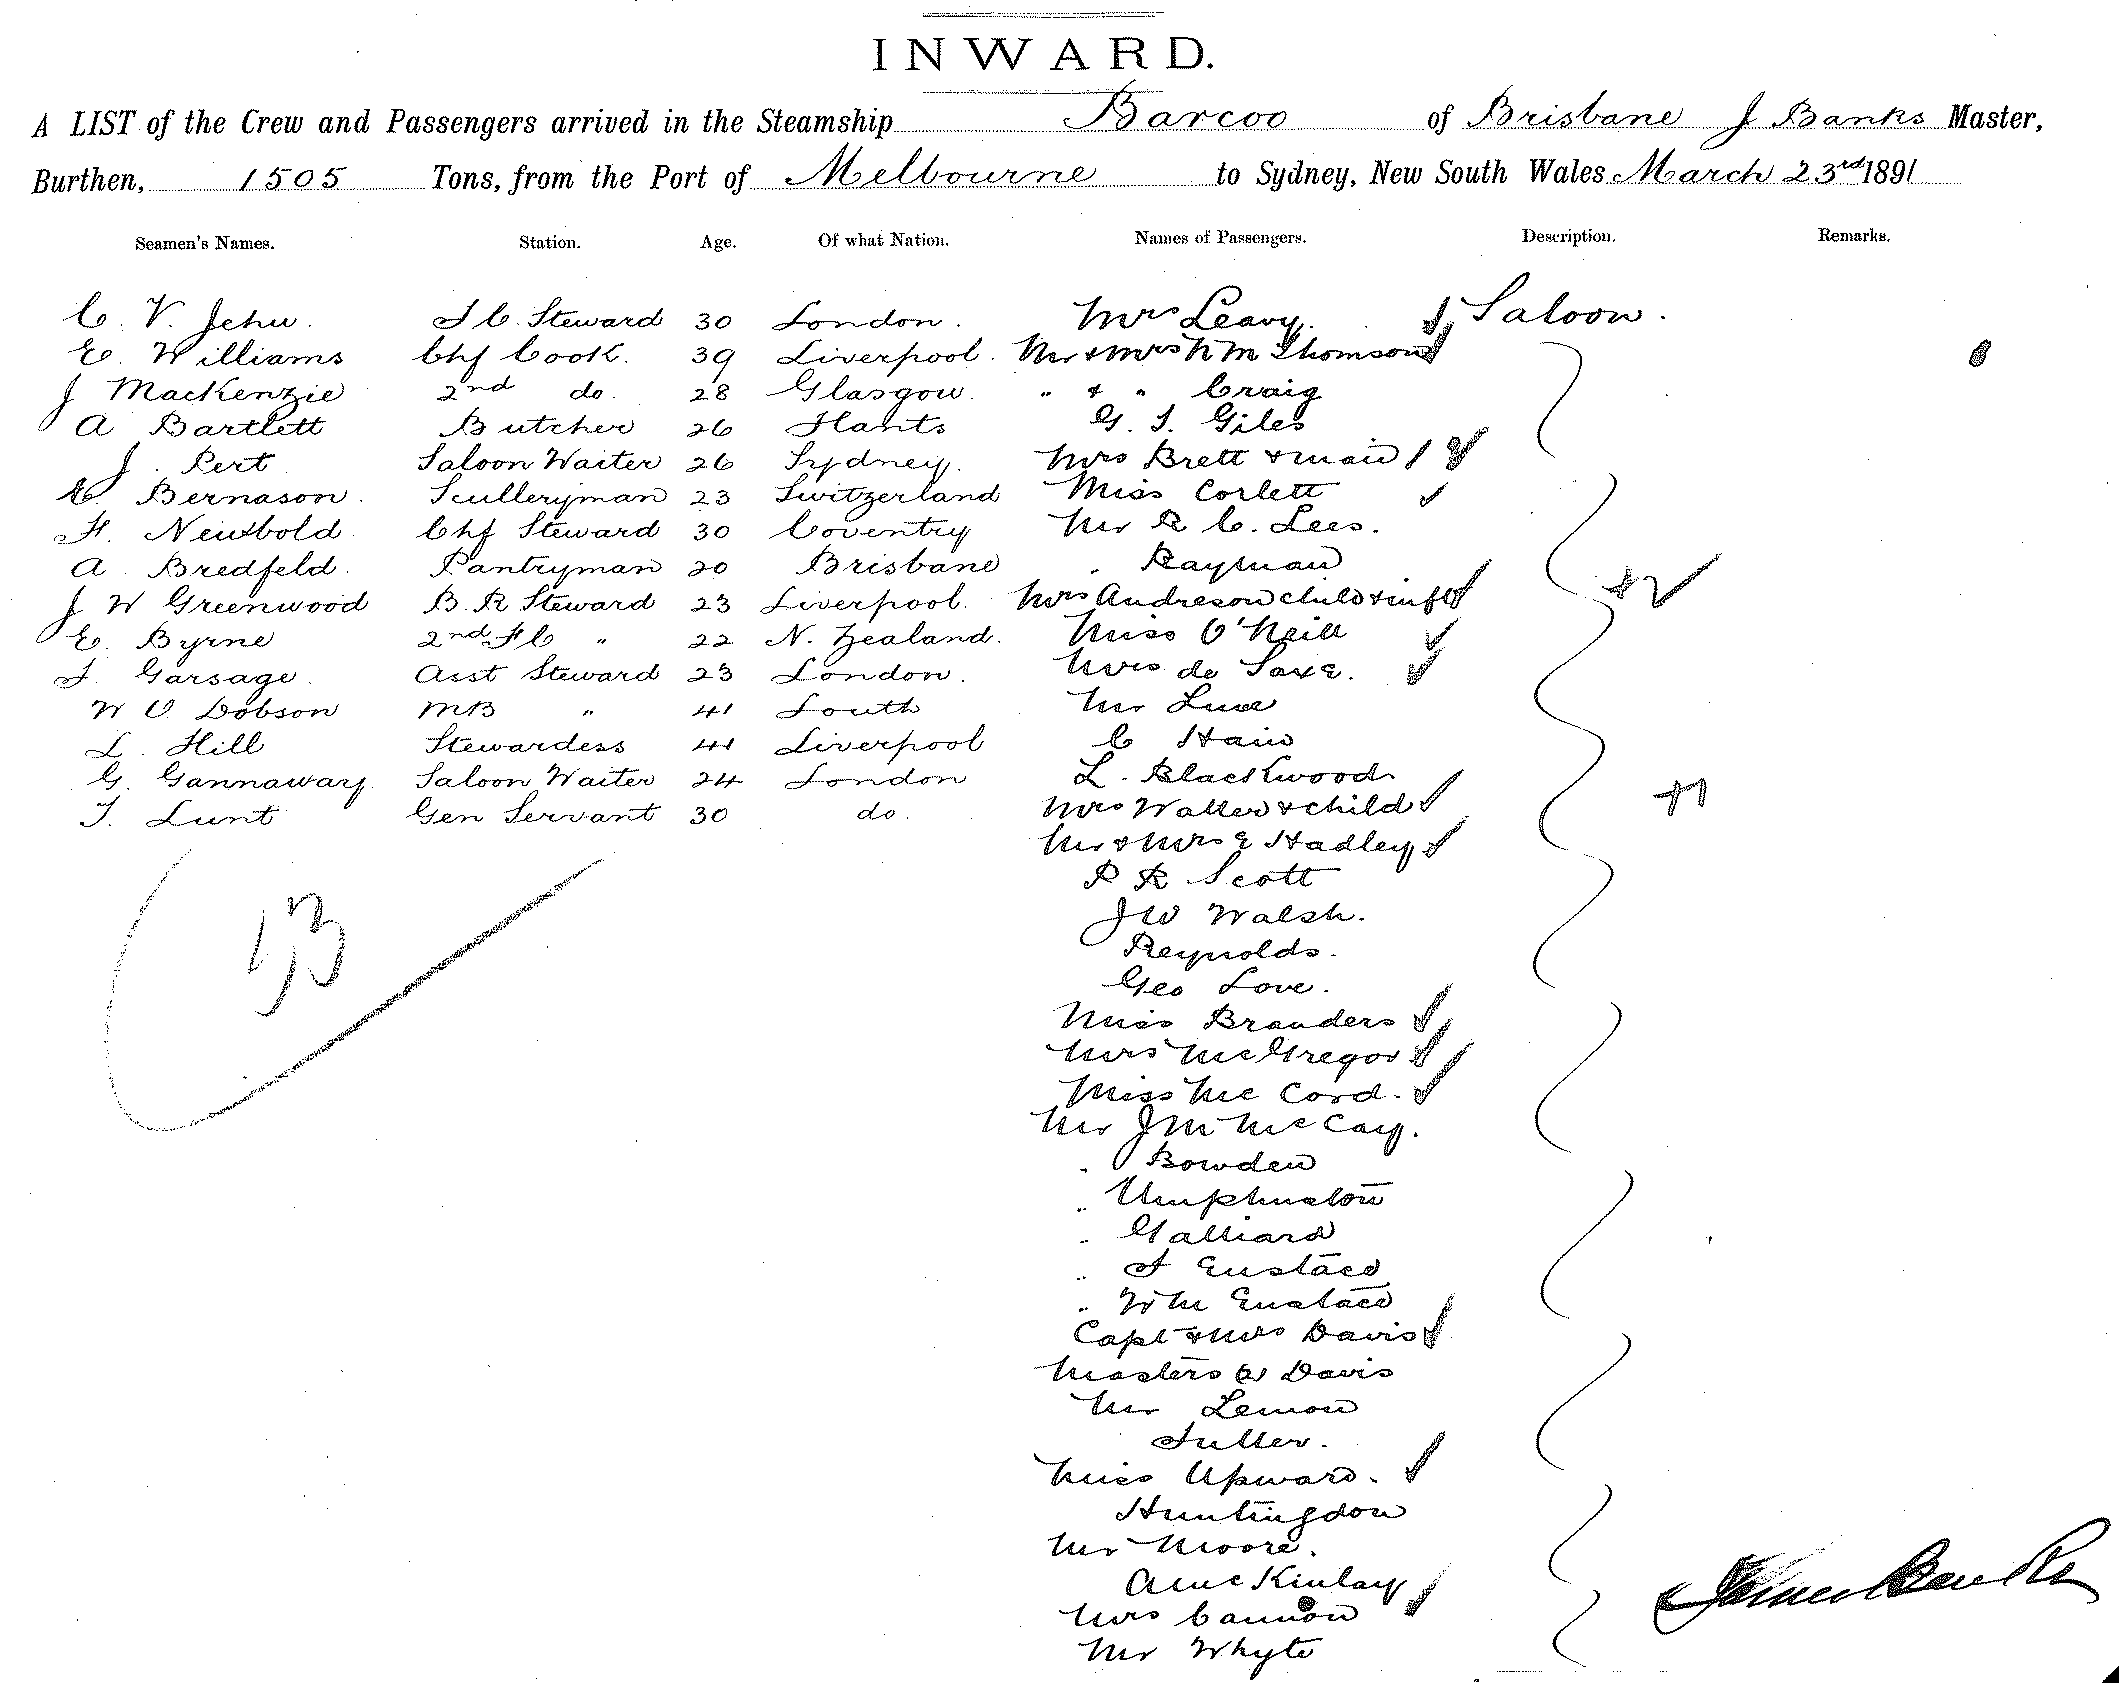 INWARD.
A LIST of the Crew and Passengers arrived in the Steamship Barcoo of Brisbane J Banks Master,
Burthen, 1505 Tons, from the Port of Melbourne to Sydney, New South Wales March 23rd 1891
Seamen's Names. Station. Age. Of what Nation. Names of Passengers. Description. Remarks.
C. V. Jehu. F C. Steward 30 London. Mrs Leavy. Saloon.
E. Williams Chf Cook. 39 Liverpool. Mr & Mrs W M Thomson
J MacKenzie 2nd do. 28 Glasgow. " & " Craig
A Bartlett Butcher 26 Hants G. S. Giles
J. Pert Saloon Waiter 26 Sydney. Mrs Brett & maid 1
E Bernason. Sculleryman 23 Switzerland Miss Corlett
H. Newbold Chf Steward 30 Coventry Mr R C. Lees.
A. Bredfeld. Pantryman 20 Brisbane " Rayman
J W Greenwood B. R Steward 23 Liverpool. Mrs Andreson child & inft +2
E. Byrne 2nd F C " 22 N. Zealand. Miss O'Neill
F. Garsage. Asst Steward 23 London. Mrs de Saxe.
W O Dobson MB " 41 Louth Mr Luxe
L. Hill Stewardess 41 Liverpool C Hain
G. Gannaway. Saloon Waiter 24 London L. Blackwood
T. Lunt Gen Servant 30 do. Mrs Walter & child +1
Mr & Mrs E Hadley
P R Scott
J W Walsh.
13 Reynolds.
Geo Love.
Miss Branders
Mrs McGregor
Miss McCord.
Mr J M McCay.
" Bowden
" Umphuston
" Galliard
" F Eustace
" Wm Eustace
Capt & Mrs Davis
Masters (2) Davis
Mr Lemon
Fuller.
Miss Upward.
Huntingdon
Mr Moore.
A McKinlay
Mrs Cannon James Banks
Mr Whyte